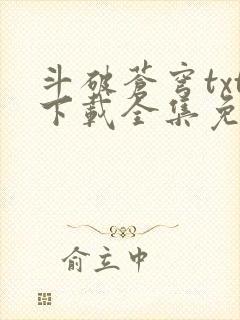 斗破苍穹txt
下载全集免
俞立中